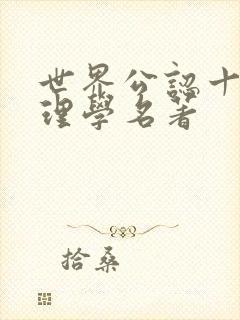 世界公認十
理學名著
拾桑